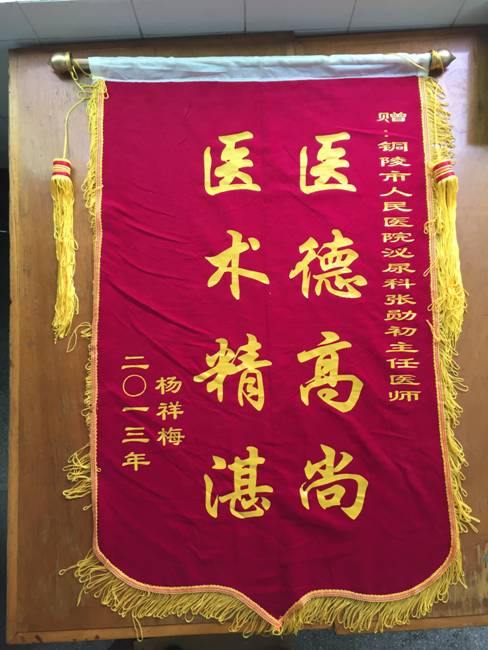 赠:铜陵市人民医院泌尿科张勋初主任医师
医德高尚
医术精湛
杨祥梅
二〇一三年